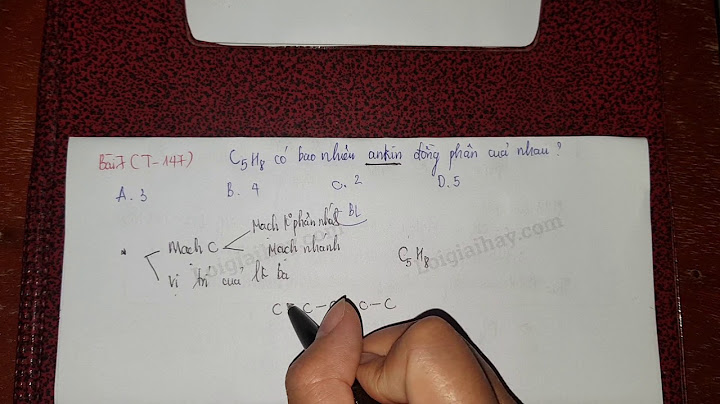 Bài 7 (T-147) C₅H₈ có bao nhiêu ankin đồng phân của nhau?
A. 3 B. 4 C. 2 D. 5
Mạch k° phân nhánh BL
* Mạch C
Mạch nhánh
C₅H₈
Vị trí của lk ba
Loigiaihay.com
Loigiaihay.com
C C - C C - C